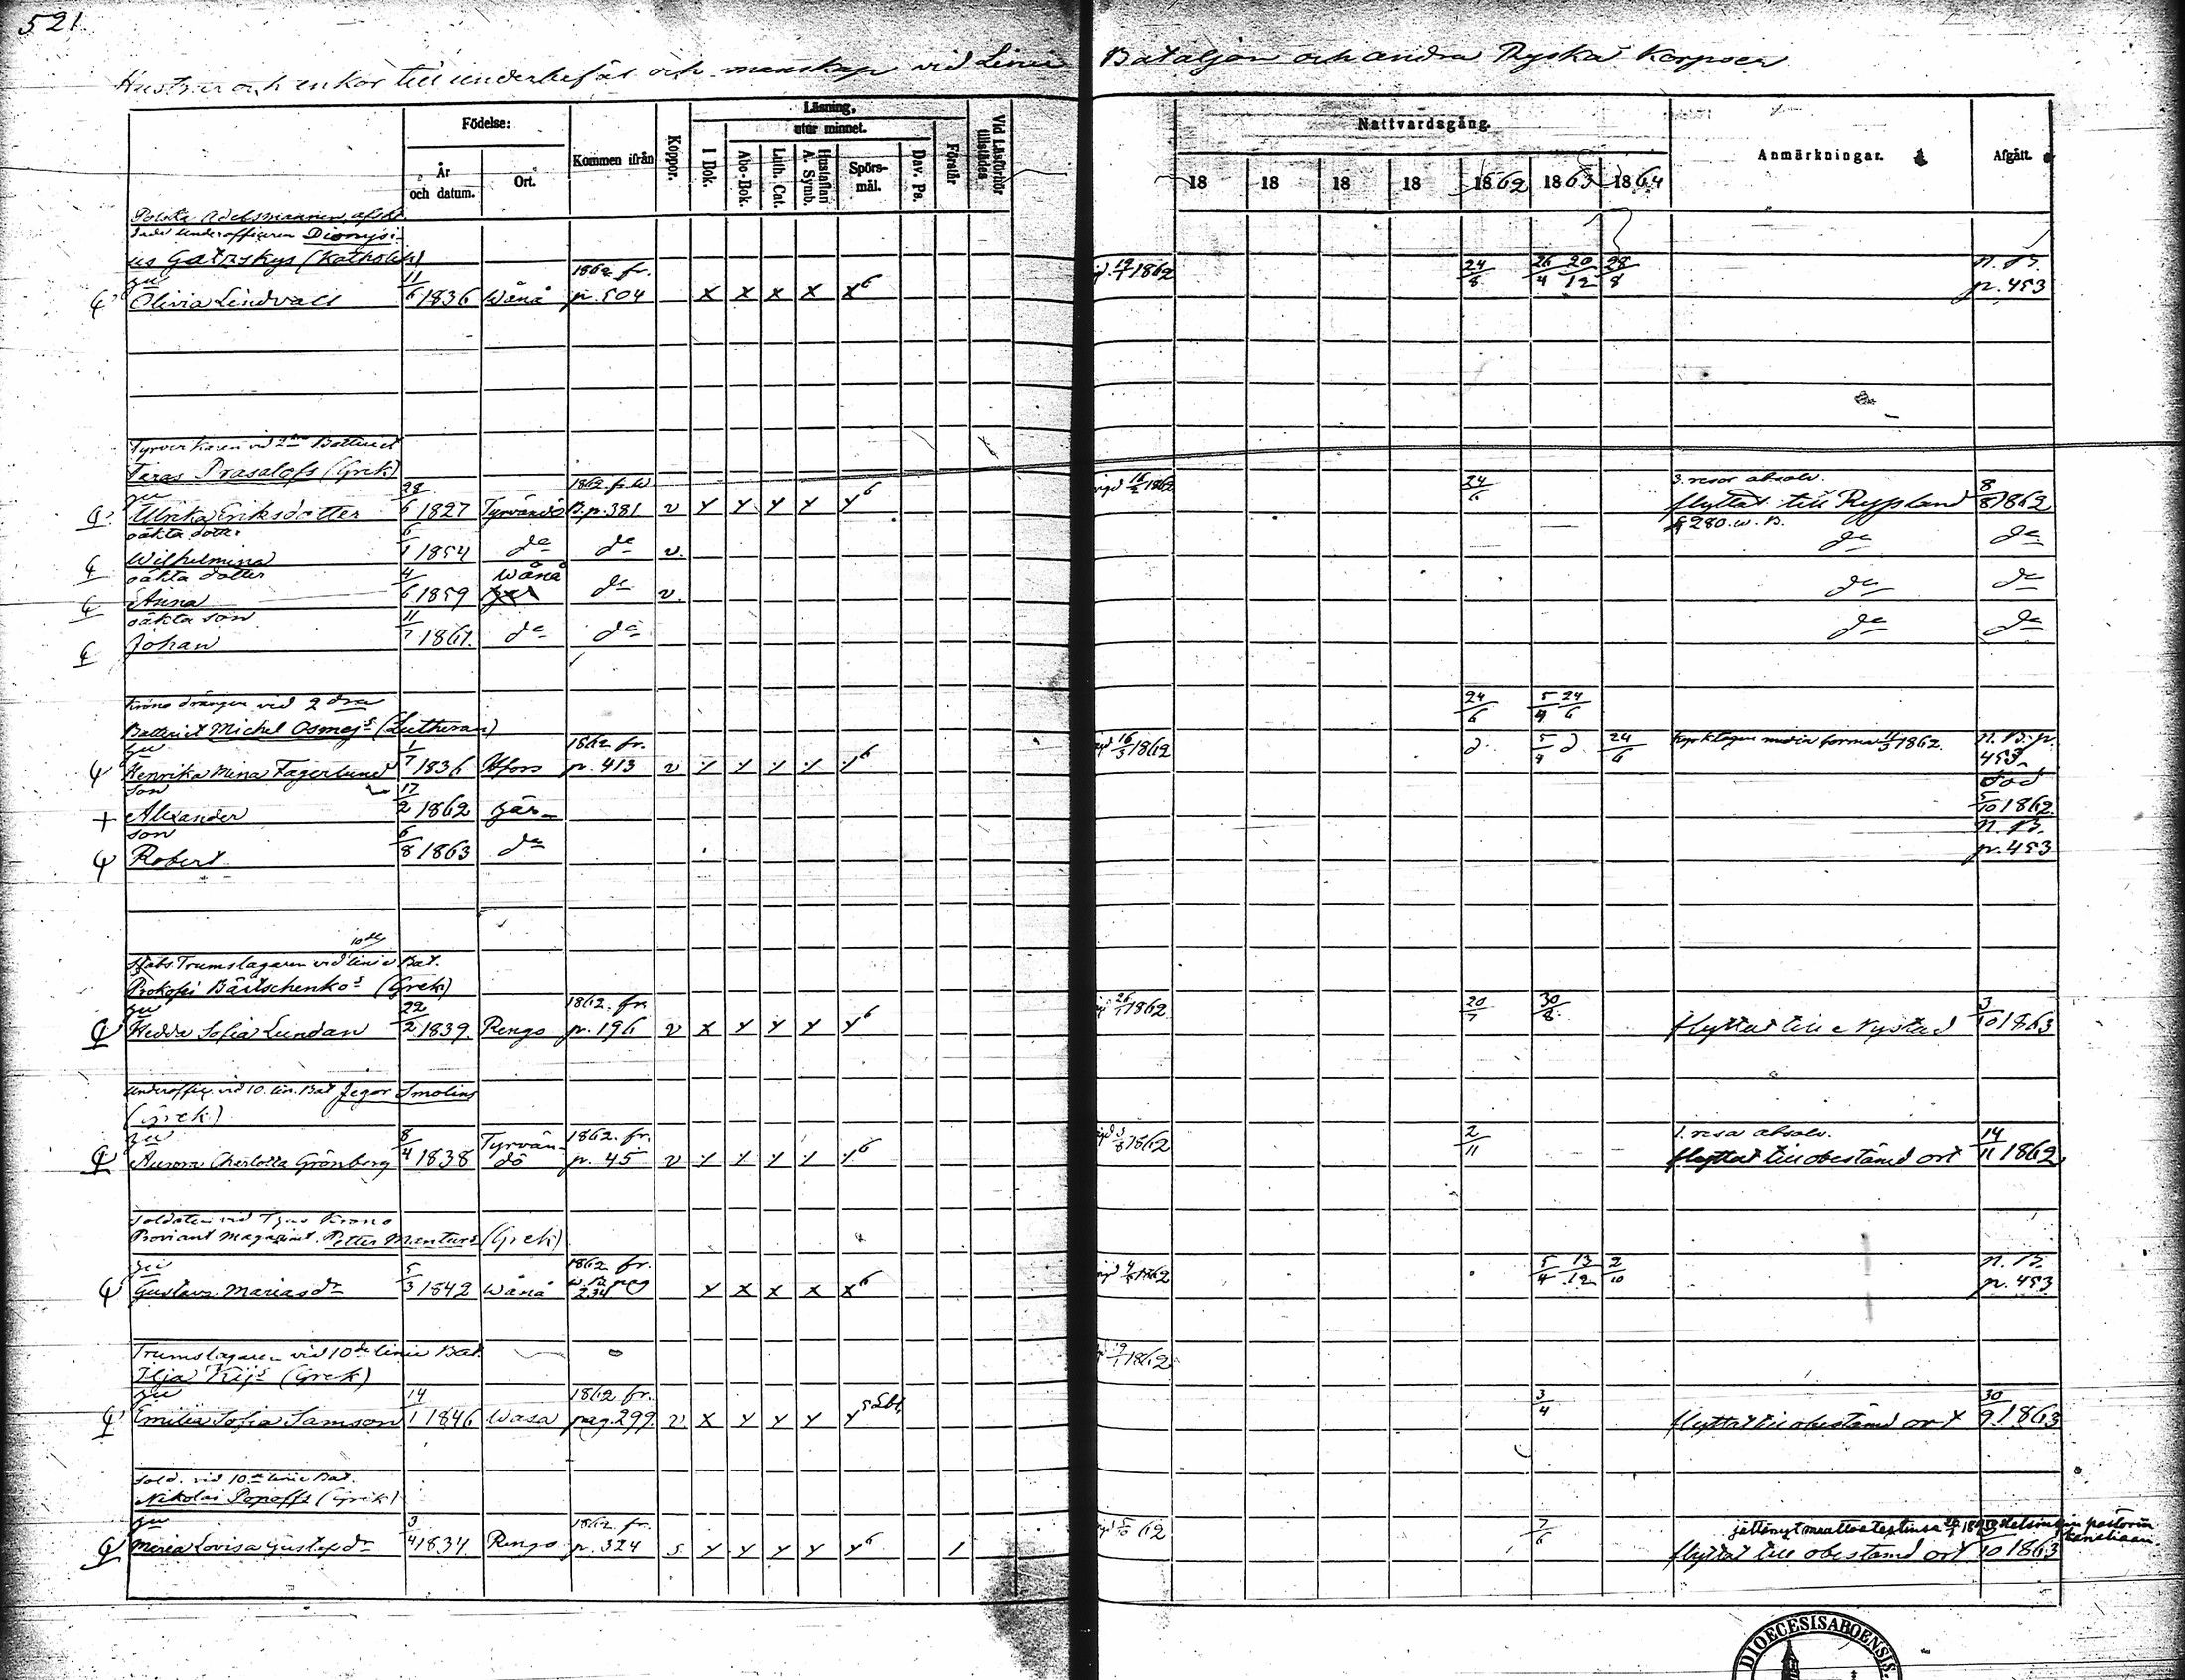 521.
Hustrur och enkor till underbefäl och manskap vid Linie Bataljon och andra Ryska Korpser
Födelse:
År och datum.
Ort.
Kommen ifrån
Koppor.
Läsning,
utur minnet.
I Bok.
Abc-Bok.
Luth. Cat.
Hustaflan A. Symb.
Spörs-mål.
Dav. Ps.
Förstår
Vid Läsförhör tillstädes
Nattvardsgång.
18 18 18 18 1862 1863 1864
Anmärkningar.
Afgått.
Polska Adelsmannen afske-
dade Underofficeren Dionysi-
us Gatzskys (Katholsk)
hu
Olivia Lindvall 11/6 1836 Wånå 1862 fr. p. 504 x x x x x6 1862 24/8 26/4 20/12 28/8 n. B. p. 453
Fyrverkaren vid 2dra Batteriet
Taras Prasalofs (Grek)
hu
Ulrika Eriksdotter 28/6 1827 Tyrvändö 1862 fr. W. B. p. 381 v y y y y y6 1862 24/6 3. resor absolv. flyttat till Ryssland 8/8 1862
§ 280. w. B.
oäkta dotter
Wilhelmina 6/1 1854 do do v. do do
oäkta dotter
Anna 4/6 1859 Wånå do v. do do
oäkta son
Johan 11/7 1861. do do do do
Krono drängen vid 2dra 24/6 5/4 24/6
Batteriet Michel Osmejs (Lutheran)
hu
Henrika Mina Fagerlund 1/7 1836 Hfors 1862 fr. p. 413 v y y y y y6 16/3 1862 24/6 Kyrktagen media forma 1862. n. B. p. 453
son
Alexander 17/2 1862 här död 5/10 1862.
son
Robert 6/8 1863 do n. B. p. 453
10de
Stabs Trumslagaren vid linie Bat.
Prokofei Bäitschenkos (Grek)
hu
Hedda Sofia Lundan 22/2 1839. Rengo 1862. fr. p. 196 v x y y y y6 1862 20/7 30/8 flyttat till Nystad 3/10 1863
Underoffic. vid 10. lin. Bat Jegor Smolins
(Grek)
hu
Aurora Charlotta Grönberg 8/4 1838 Tyrvän-dö 1862. fr. p. 45 v y y y y y6 1862 2/11 1. resa absolv. flyttat till obestämd ort 14/11 1862
Soldaten vid Tjus Krono
Proviant Magazinet. Petter Menturs (Grek)
hu
Gustava Mariasdr 5/3 1842 Wånå 1862 fr. W. B. pag 234 y x x x x6 1862 5/4 13/12 2/10 n. B. p. 453
Trumslagaren vid 10de linie Bat.
Ilja Kijs (Grek)
hu
Emilia Sofia Samson 14/1 1846 Wasa 1862 fr. pag. 299. v x y y y y 1862 3/4 flyttat till obestämd ort 30/9 1863
Sold. vid 10de linie Bat.
Nikolai Popoffs (Grek)
hu
Maria Lovisa Gustafsdr 3/4 1834. Rengo 1862 fr. p. 324 s y y y y y6 1 62 7/6 flyttat till obestämd ort 10 1863
jättänyt muuttoatestinsa Helsingin pastorin kansliaan.
DIOECESIS ABOENSIS